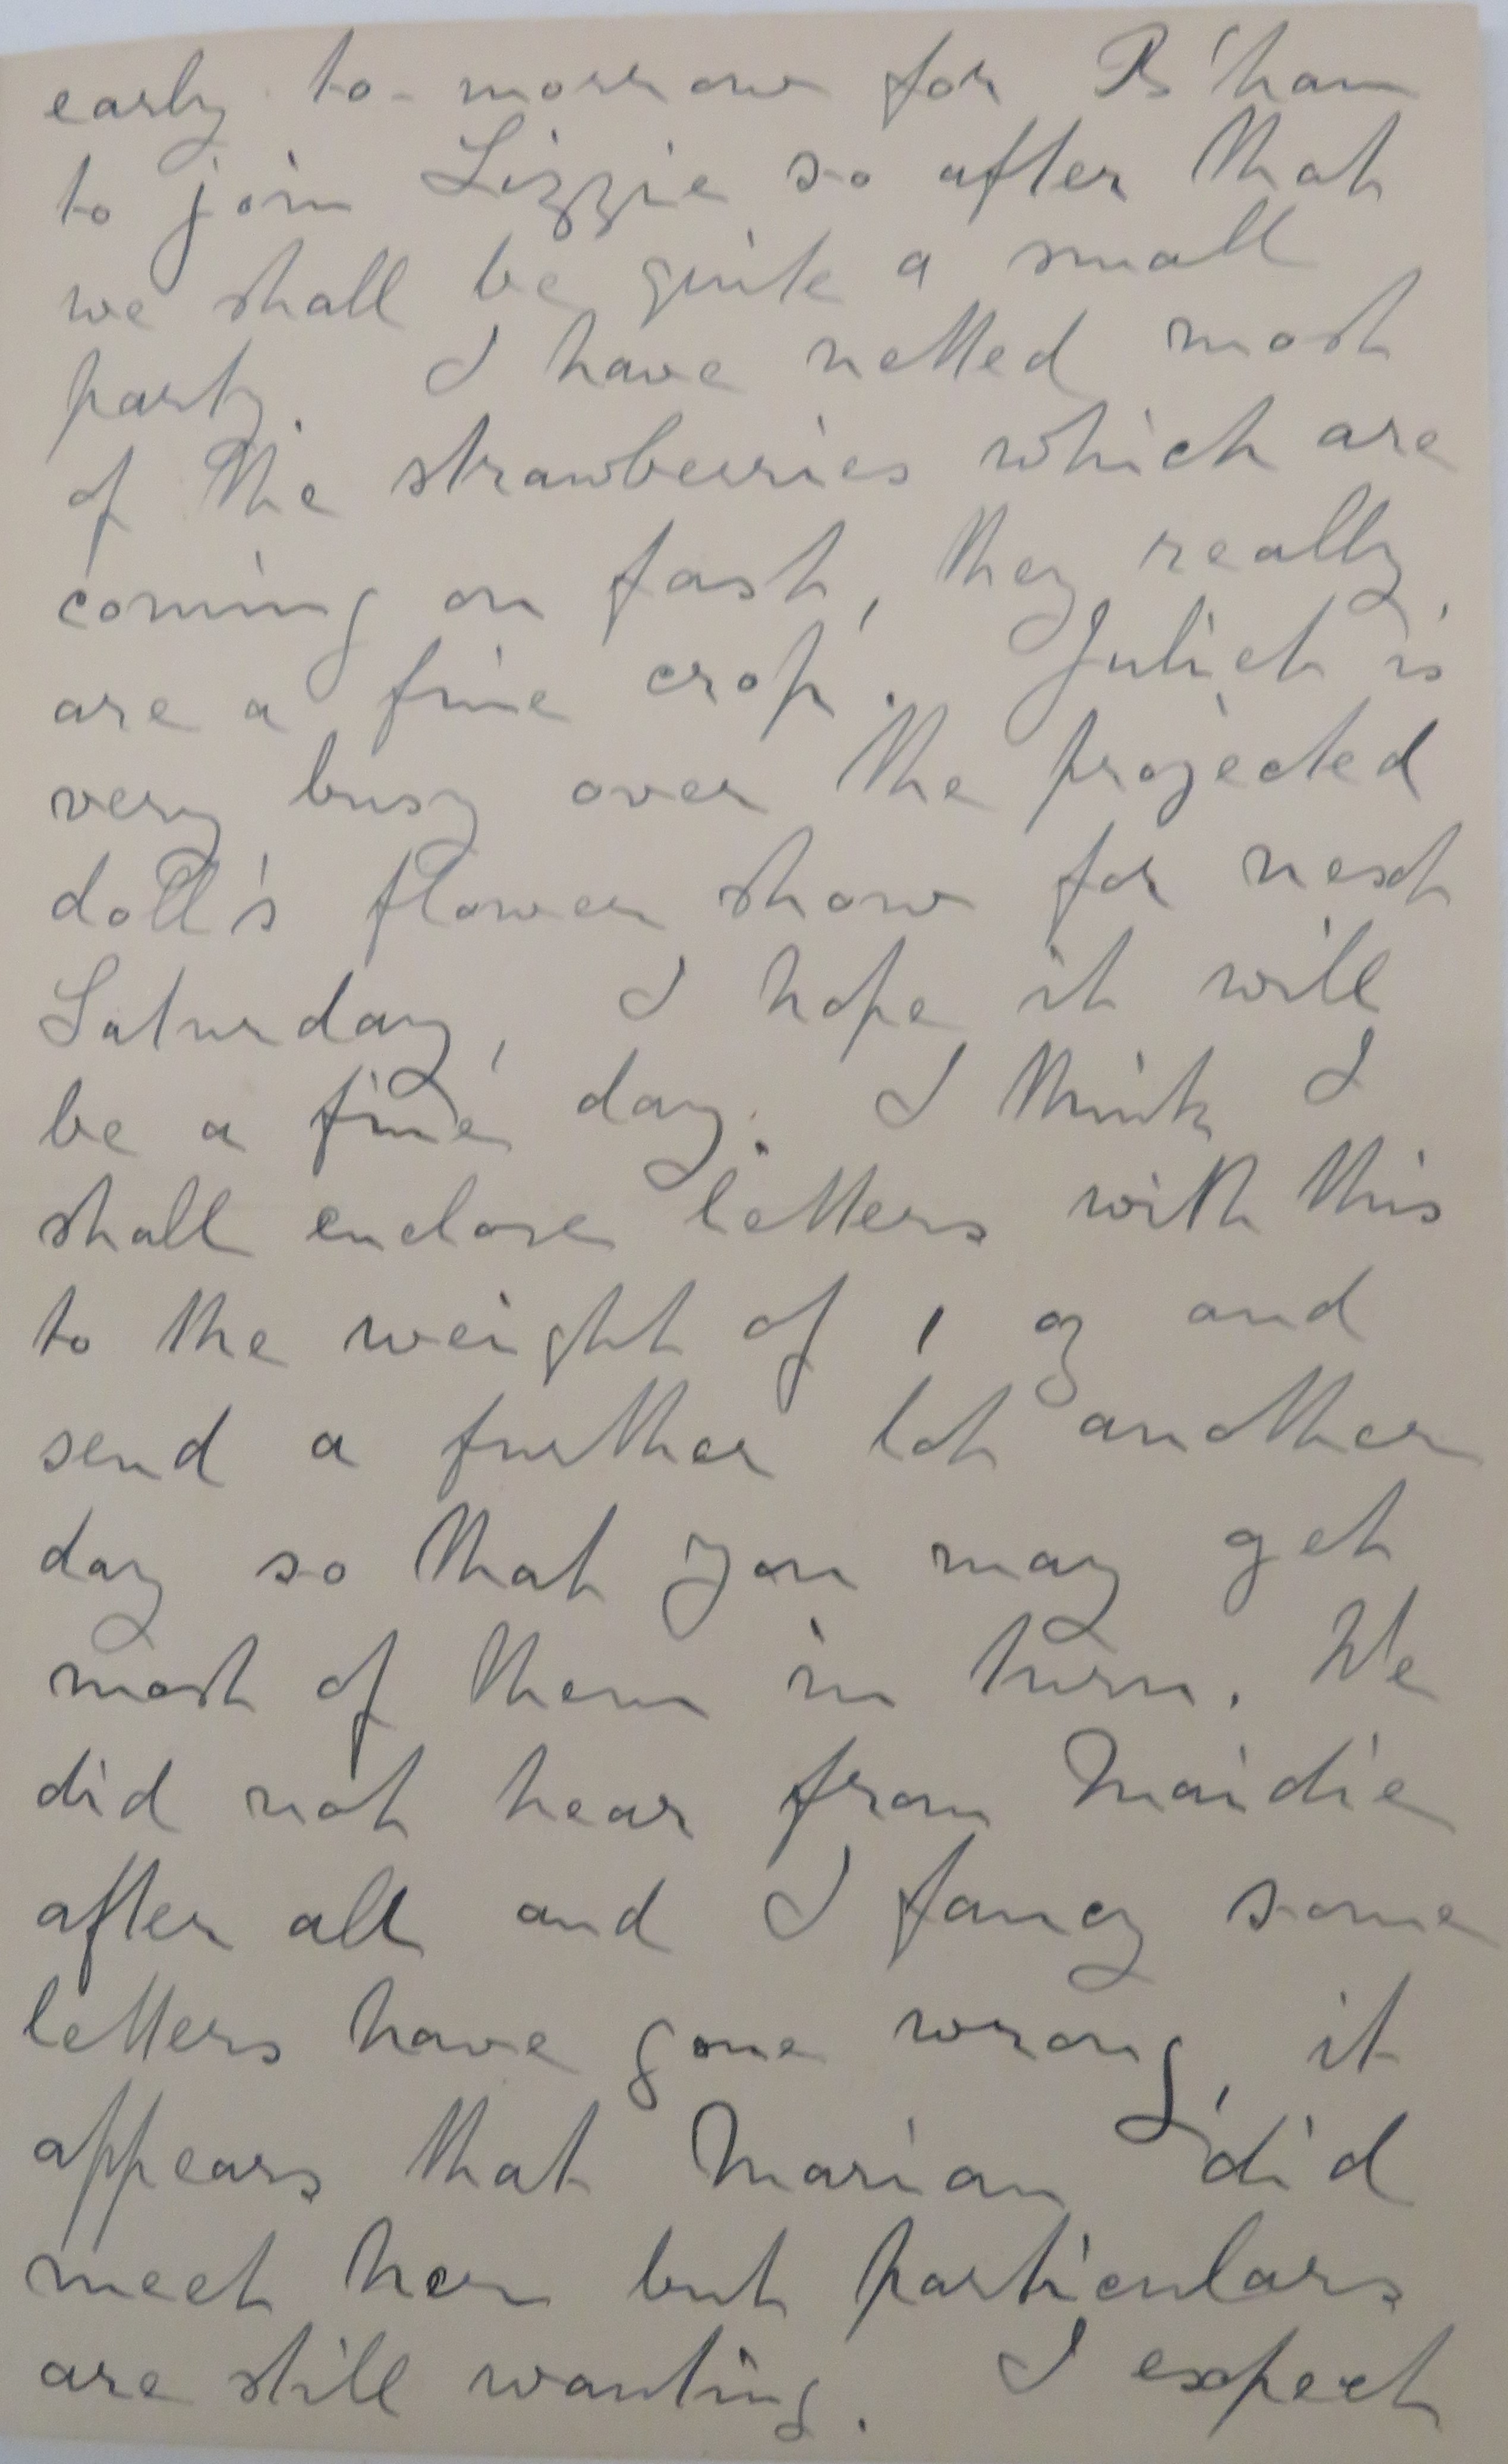 early to-morrow for B'ham
to join Lizzie so after that
we shall be quite a small
party. I have netted most
of the strawberries which are
coming on fast, they really
are a fine crop. Juliet is
very busy over the projected
doll's flower show for next
Saturday, I hope it will
be a fine day. I think I
shall enclose letters with this
to the weight of 1 oz and
send a further lot another
day so that you may get
most of them in turn. We
did not hear from Maidie
after all and I fancy some
letters have gone wrong, it
appears that Marian did
meet her but particulars
are still wanting. I expect